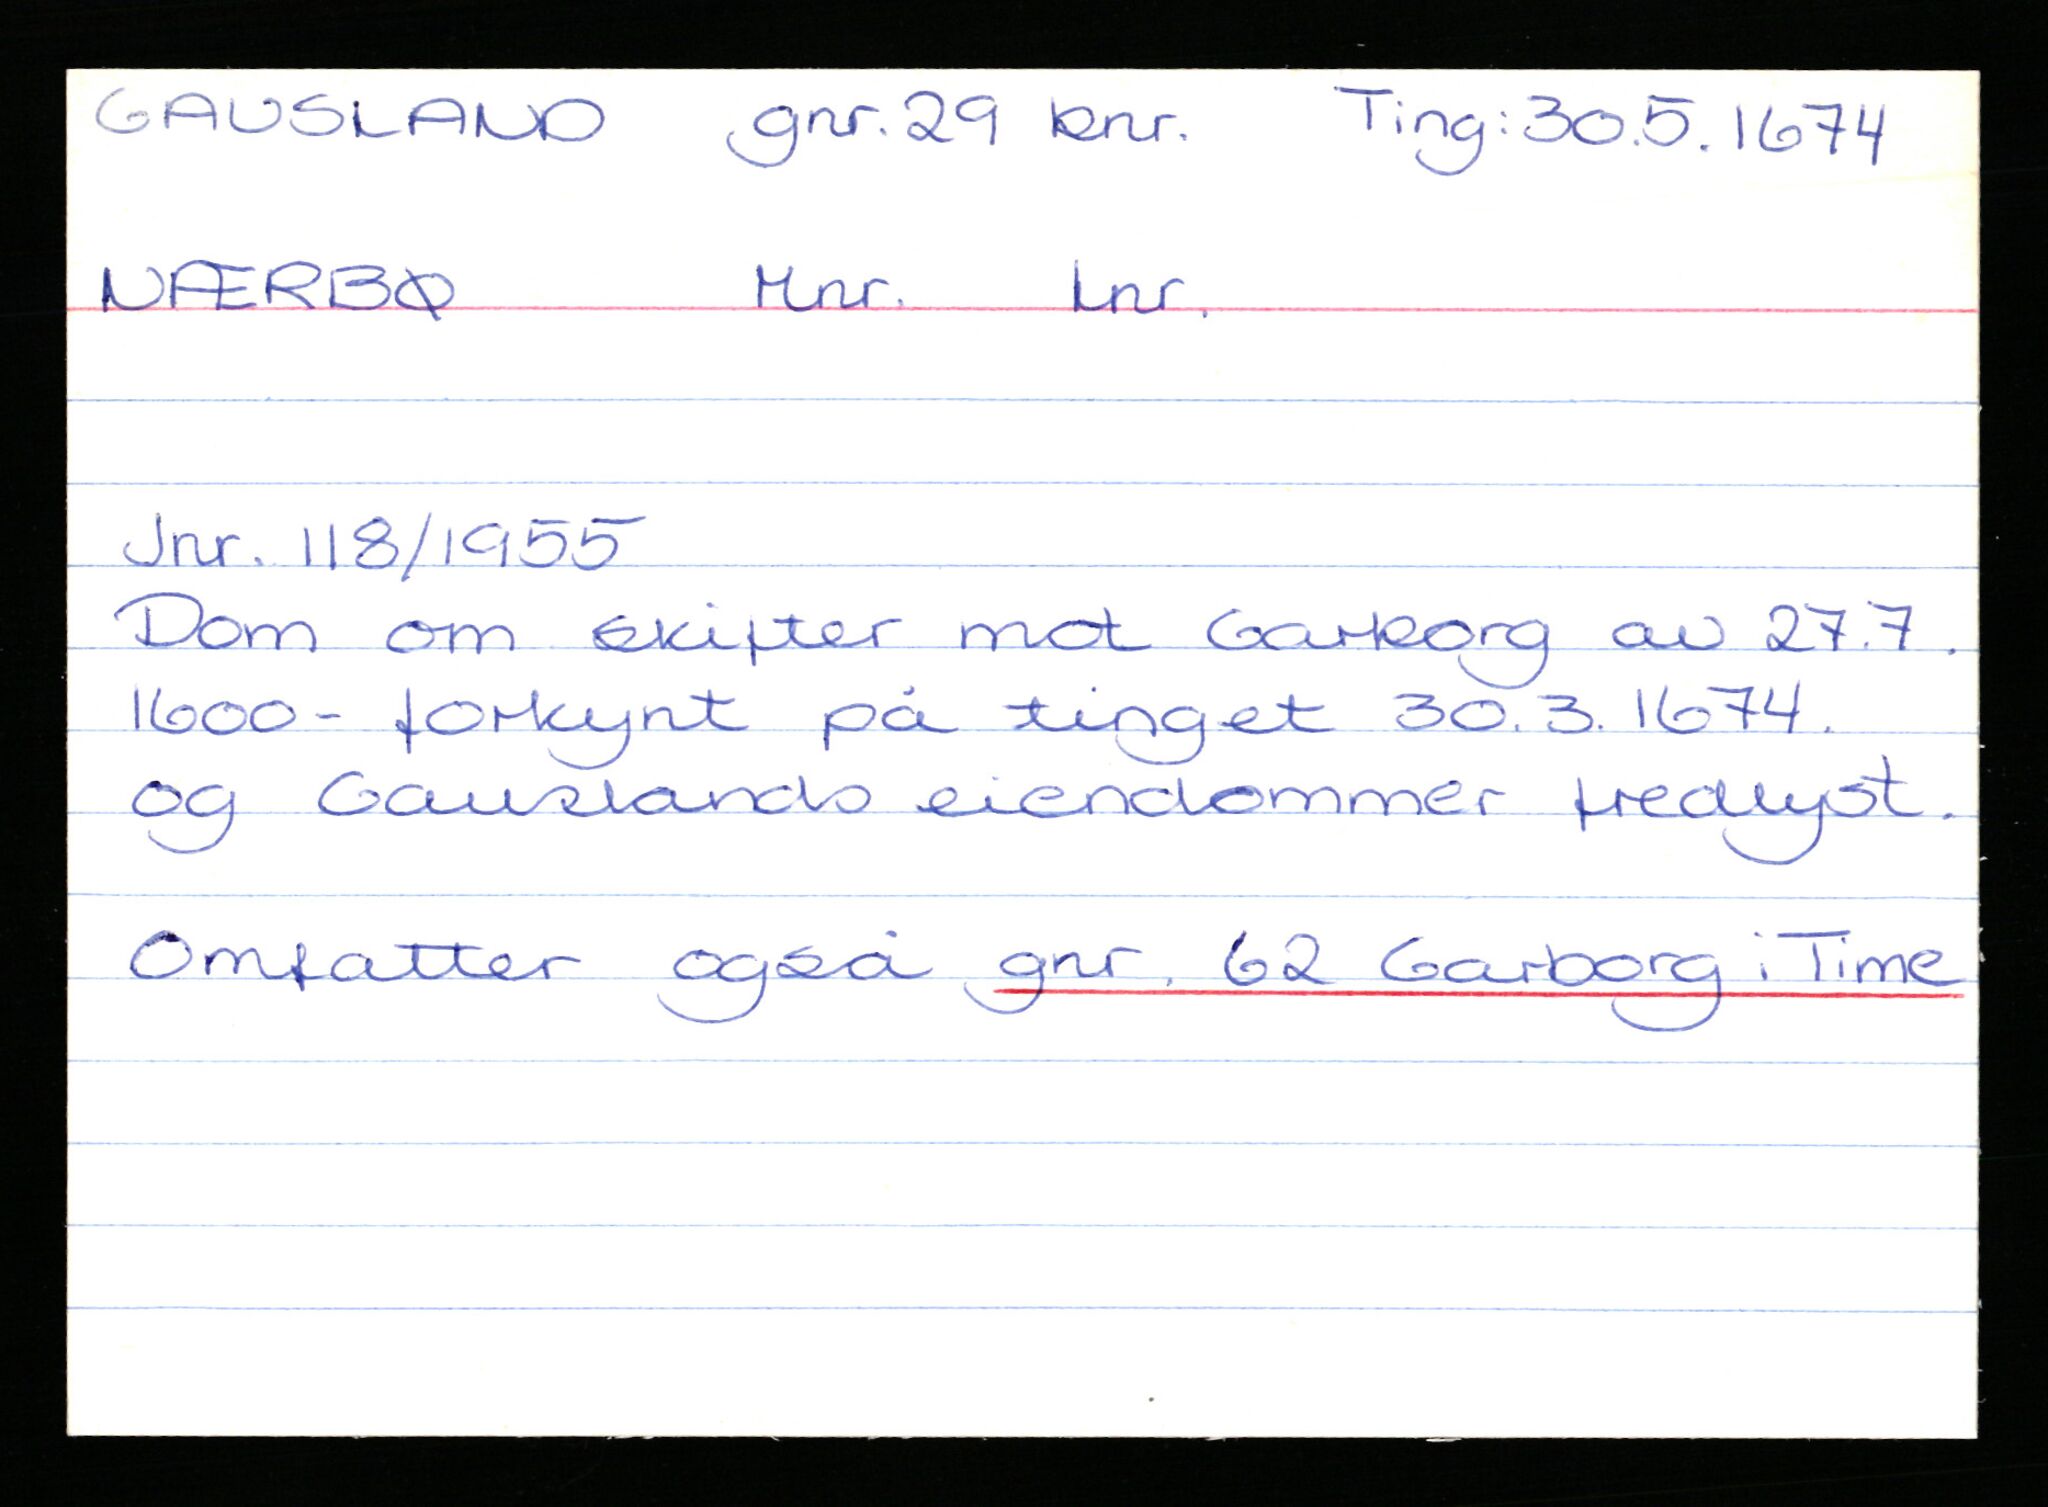 GAUSLAND gnr. 29 bnr. Ting: 30.5.1674
NÆRBØ Mnr. Lnr.
Jnr. 118/1955
Dom om skifter mot Garborg av 27.7.
1600 - forkynt på tinget 30.3.1674.
og Gauslands eiendommer fredlyst.
Omfatter også gnr. 62 Garborg i Time